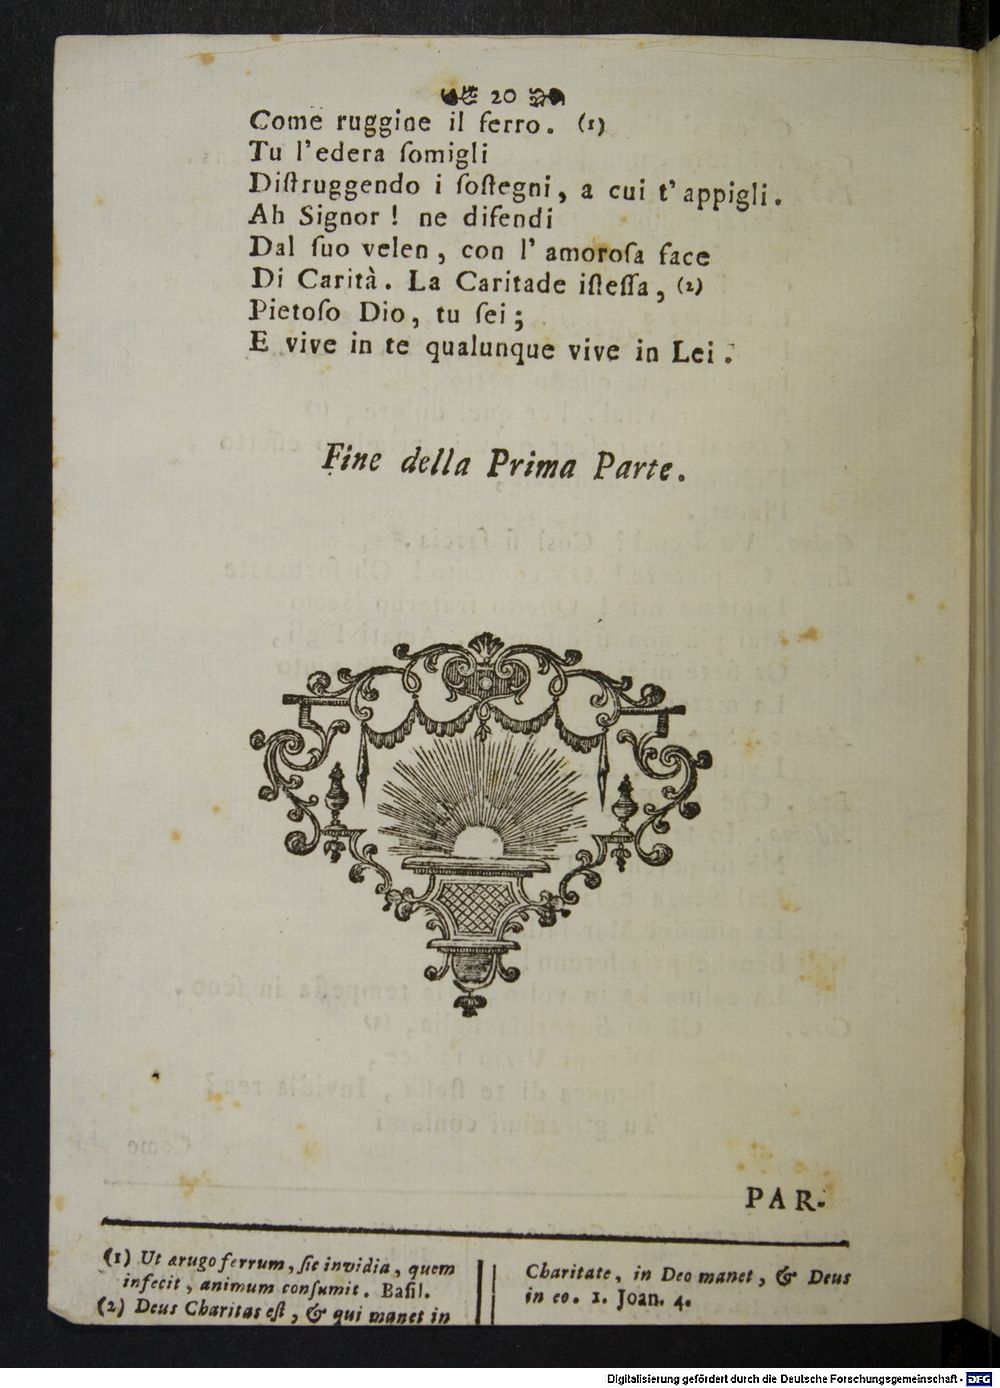 20
Come ruggine il ferro. (1)
Tu l'edera ſomigli
Diſtruggendo i ſoſtegni, a cui t'appigli.
Ah Signor! ne difendi
Dal ſuo velen, con l' amoroſa face
Di Carità. La Caritade iſteſſa, (2)
Pietoſo Dio, tu ſei;
E vive in te qualunque vive in Lei.
Fine della Prima Parte.
PAR-
(1) Ut arugo ferrum, ſic invidia, quem
infecit, animum conſumit. Baſil.
(2) Deus Charitas eſt, & qui manet in
Charitate, in Deo manet, & Deus
in eo. 1. Joan. 4.
Digitalisierung gefördert durch die Deutsche Forschungsgemeinschaft - DFG